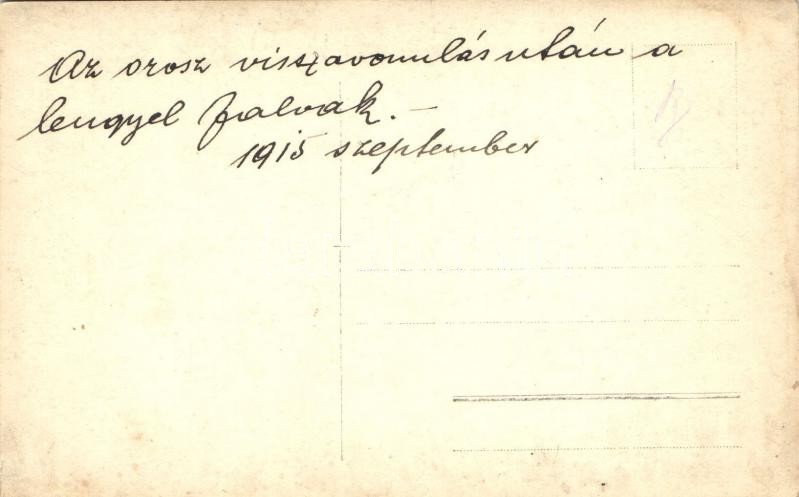 Az orosz visszavonulás után a
lengyel falvak. —
1915 szeptember